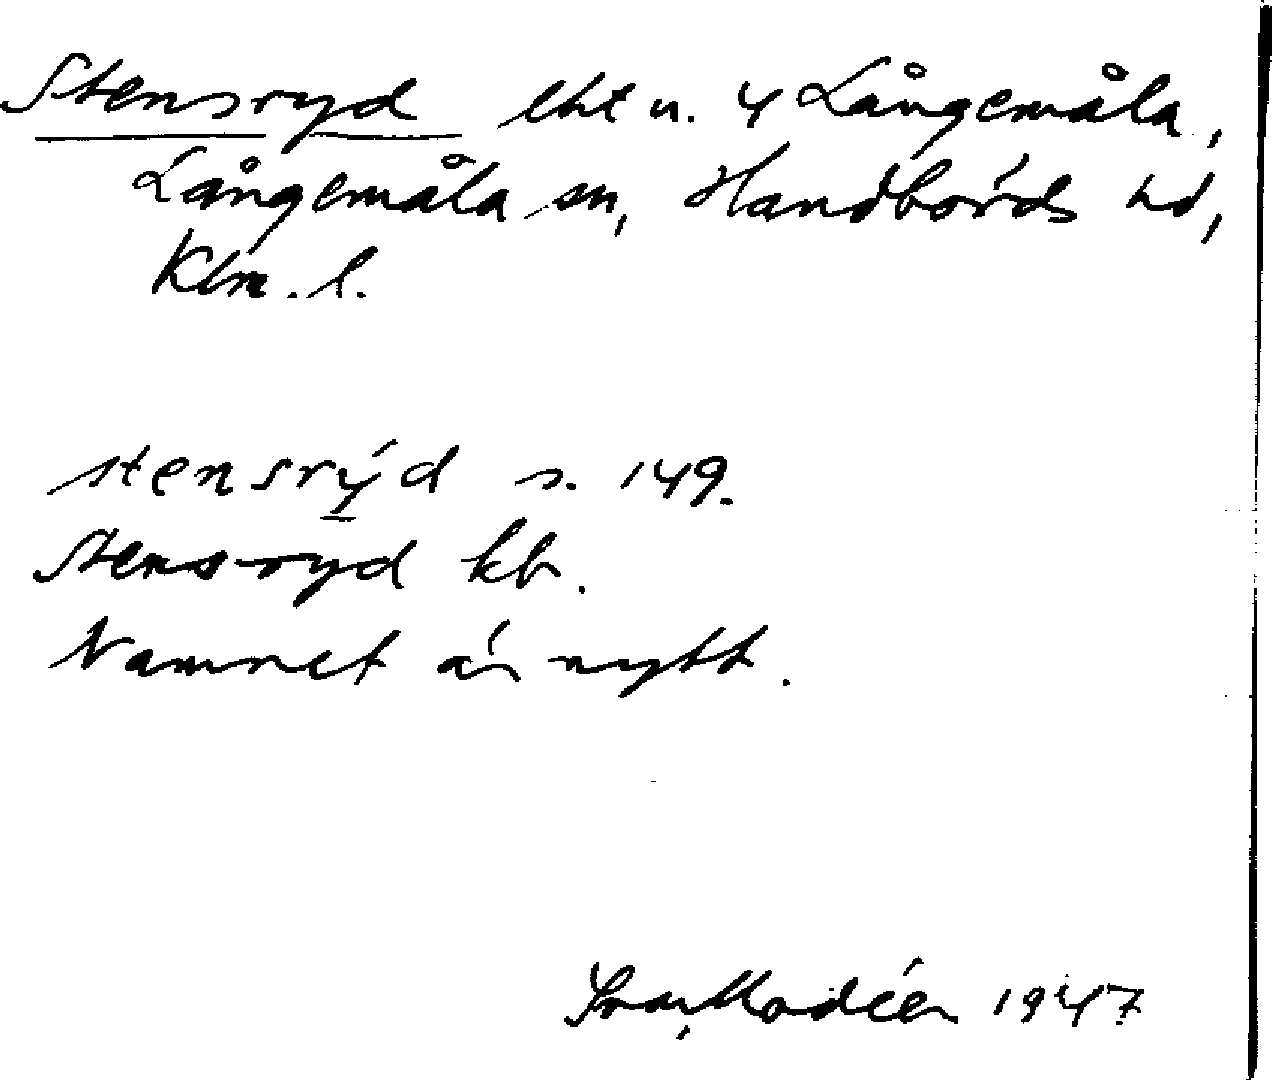 Stensryd lht u. 4 Långemåla,
Långemåla sn, Handbörds hd,
Klm. l.
stensrýd s. 149.
Stensryd kb.
Namnet är nytt.
Ivar Modéer 1947